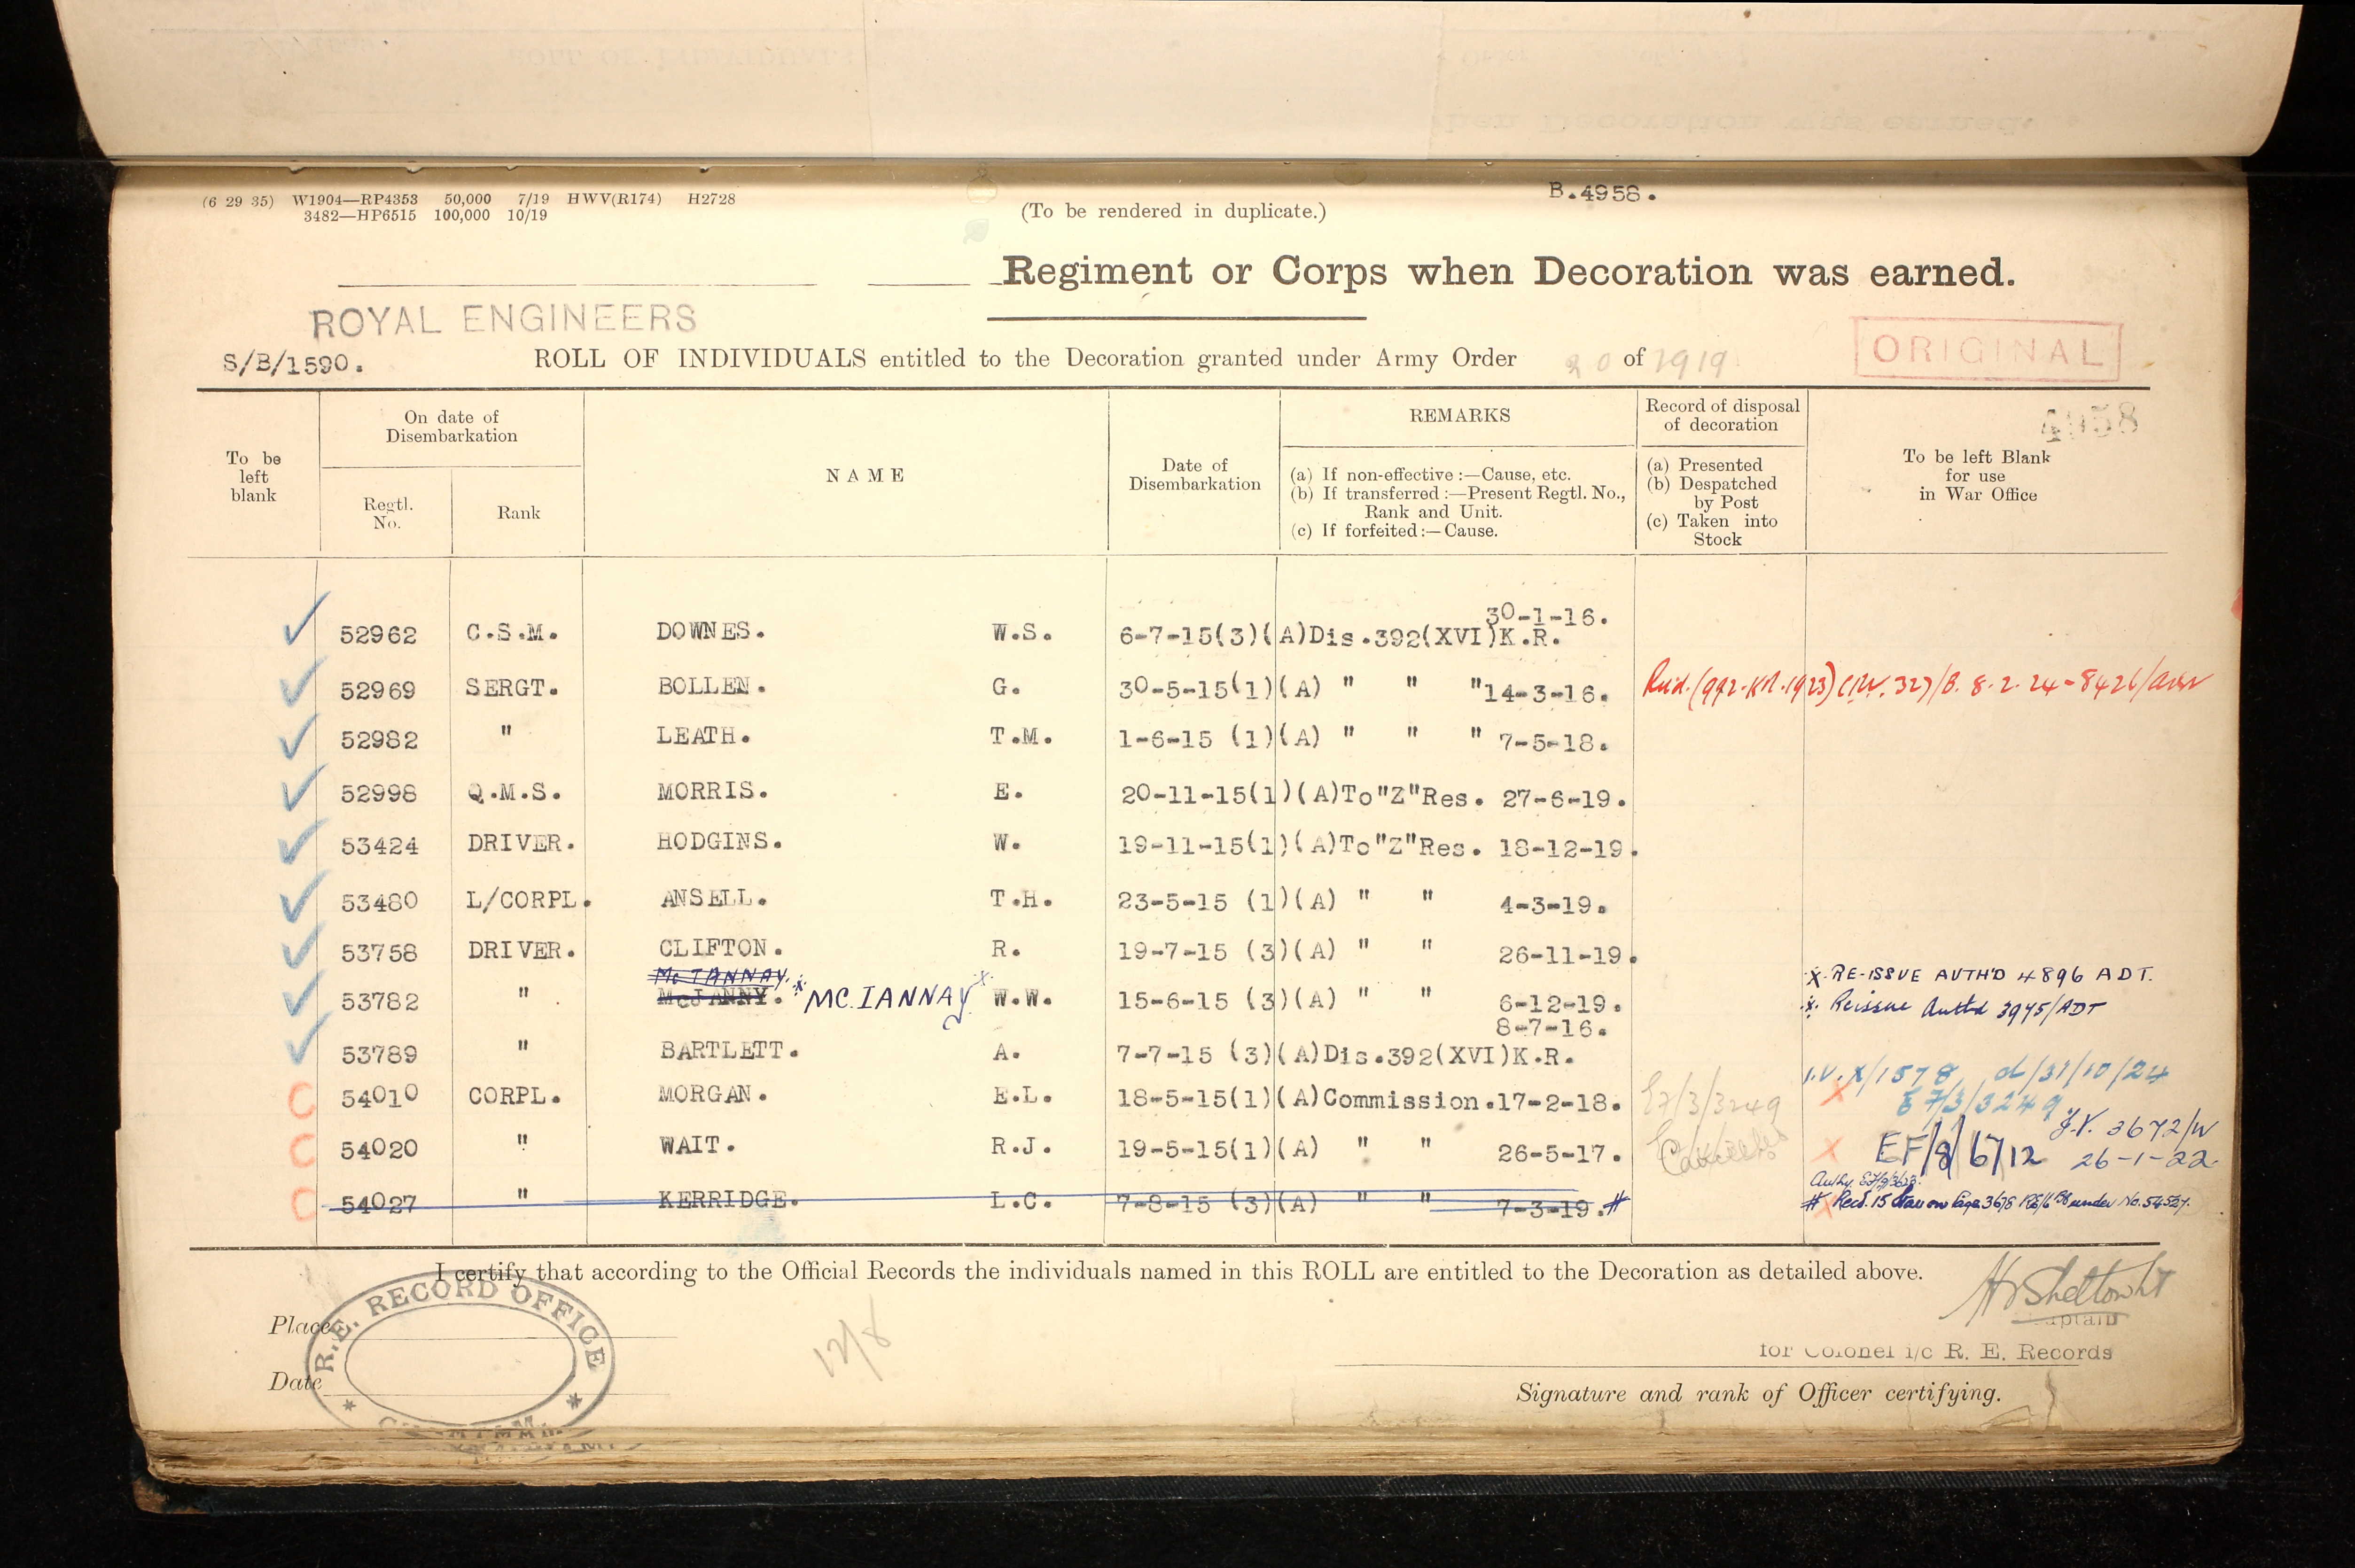 (6 29 35) W1904—RP4353 50,000 7/19 HWV(R174) H2728
3482—HP6515 100,000 10/19
(To be rendered in duplicate.)
B.4958.
Regiment or Corps when Decoration was earned.
ROYAL ENGINEERS
S/B/1590.
ROLL OF INDIVIDUALS entitled to the Decoration granted under Army Order 20 of 1919
ORIGINAL
To be left blank
On date of Disembarkation
Regtl. No.
Rank
NAME
Date of Disembarkation
REMARKS
(a) If non-effective :—Cause, etc.
(b) If transferred :—Present Regtl. No., Rank and Unit.
(c) If forfeited :—Cause.
Record of disposal of decoration
(a) Presented
(b) Despatched by Post
(c) Taken into Stock
4958
To be left Blank for use in War Office
30-1-16.
52962 C.S.M. DOWNES. W.S. 6-7-15(3)(A)Dis.392(XVI)K.R.
52969 SERGT. BOLLEN. G. 30-5-15(1)(A) " " "14-3-16. (992·KR·1923) 8.2.24
52982 " LEATH. T.M. 1-6-15 (1)(A) " " " 7-5-18.
52998 Q.M.S. MORRIS. E. 20-11-15(1)(A)To"Z"Res. 27-6-19.
53424 DRIVER. HODGINS. W. 19-11-15(1)(A)To"Z"Res. 18-12-19.
53480 L/CORPL. ANSELL. T.H. 23-5-15 (1)(A) " " 4-3-19.
53758 DRIVER. CLIFTON. R. 19-7-15 (3)(A) " " 26-11-19.
McJANNAY. x RE-ISSUE AUTH'D 4896 ADT.
53782 " McJANNY. x MC.IANNAY x W.W. 15-6-15 (3)(A) " " 6-12-19. x Reissue Auth'd 3975/ADT
8-7-16.
53789 " BARTLETT. A. 7-7-15 (3)(A)Dis.392(XVI)K.R.
I.V. X/1578 d/31/10/24
C 54010 CORPL. MORGAN. E.L. 18-5-15(1)(A)Commission.17-2-18. E7/3/3249 X E7/3/3249
I.V. 3672/W
C 54020 " WAIT. R.J. 19-5-15(1)(A) " " 26-5-17. X EF/8/6/12 26-1-22.
C 54027 " KERRIDGE. L.C. 7-8-15 (3)(A) " " 7-3-19.# # Recd. 15 Star on Page 3678 under No. 54527.
I certify that according to the Official Records the individuals named in this ROLL are entitled to the Decoration as detailed above.
Place
Date
R.E. RECORD OFFICE
CHATHAM.
12/8
Captain
for Colonel i/c R. E. Records
Signature and rank of Officer certifying.